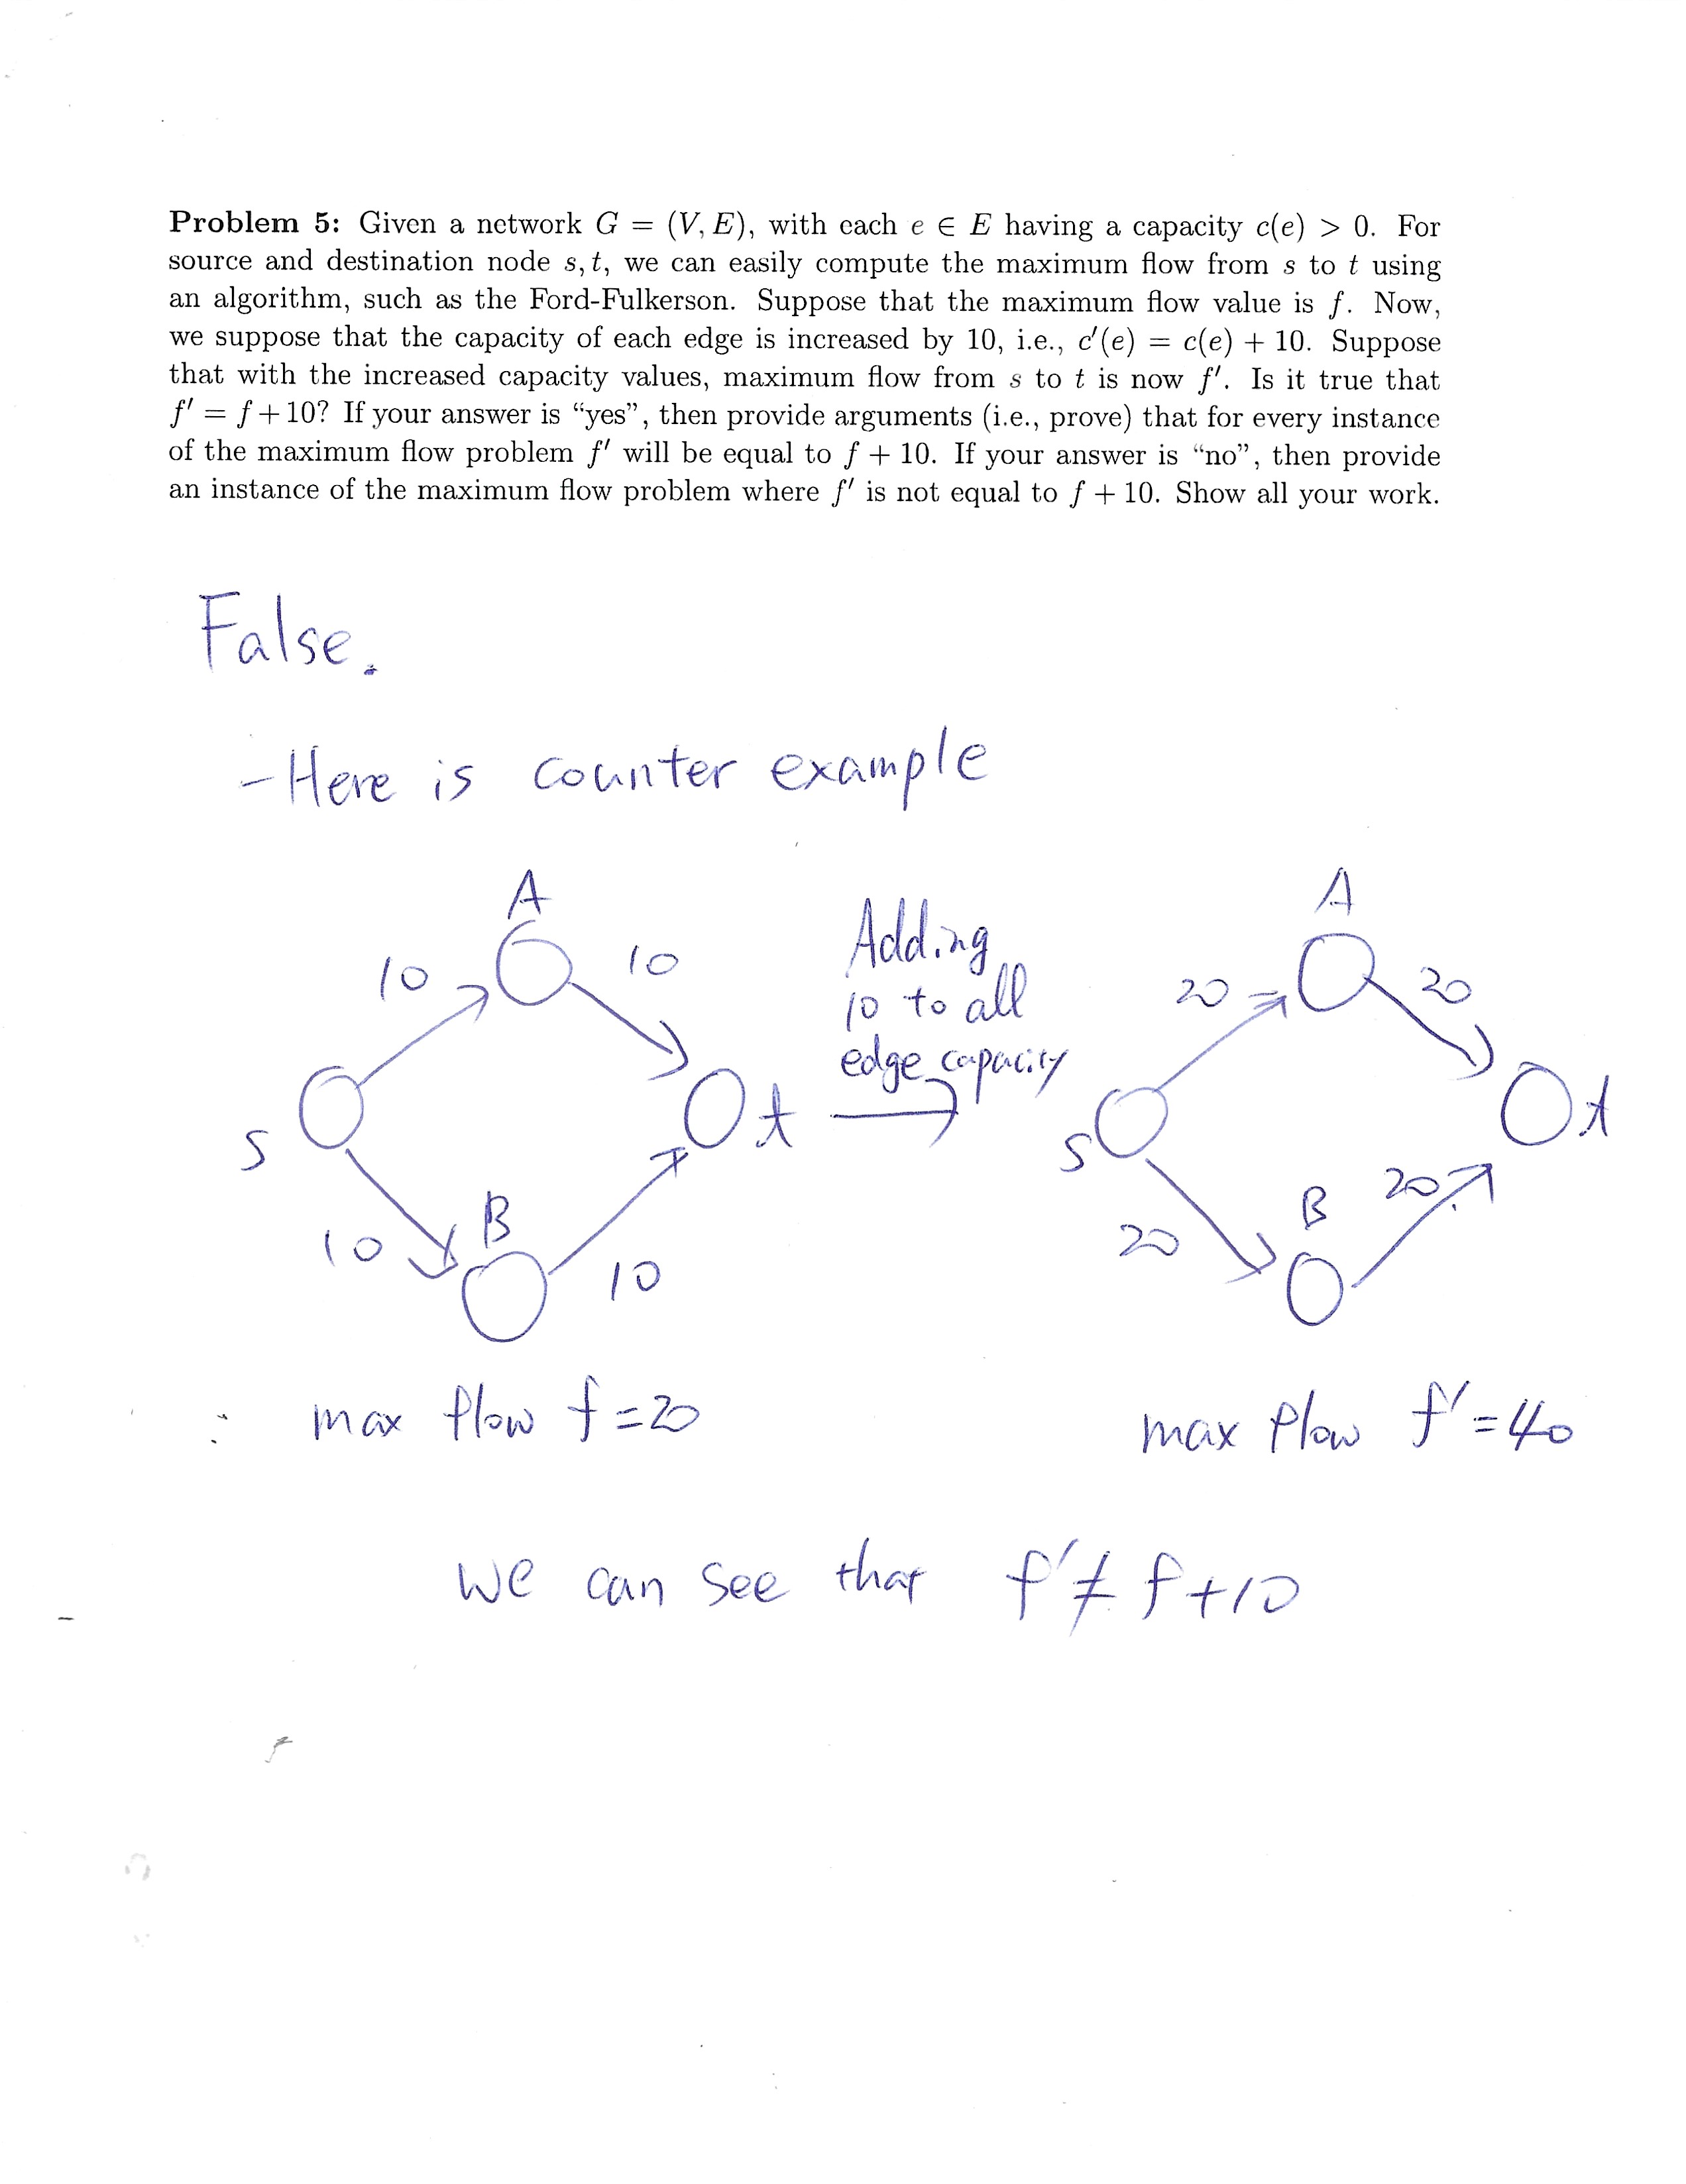 Problem 5: Given a network G = (V, E), with each e ∈ E having a capacity c(e) > 0. For
source and destination node s, t, we can easily compute the maximum flow from s to t using
an algorithm, such as the Ford-Fulkerson. Suppose that the maximum flow value is f. Now,
we suppose that the capacity of each edge is increased by 10, i.e., c′(e) = c(e) + 10. Suppose
that with the increased capacity values, maximum flow from s to t is now f′. Is it true that
f′ = f + 10? If your answer is “yes”, then provide arguments (i.e., prove) that for every instance
of the maximum flow problem f′ will be equal to f + 10. If your answer is “no”, then provide
an instance of the maximum flow problem where f′ is not equal to f + 10. Show all your work.
False.
- Here is counter example
A
10
10
S
t
B
10
10
Adding
10 to all
edge capacity
A
20
20
S
t
B
20
20
max flow f = 20
max flow f′ = 40
we can see that f′ ≠ f + 10